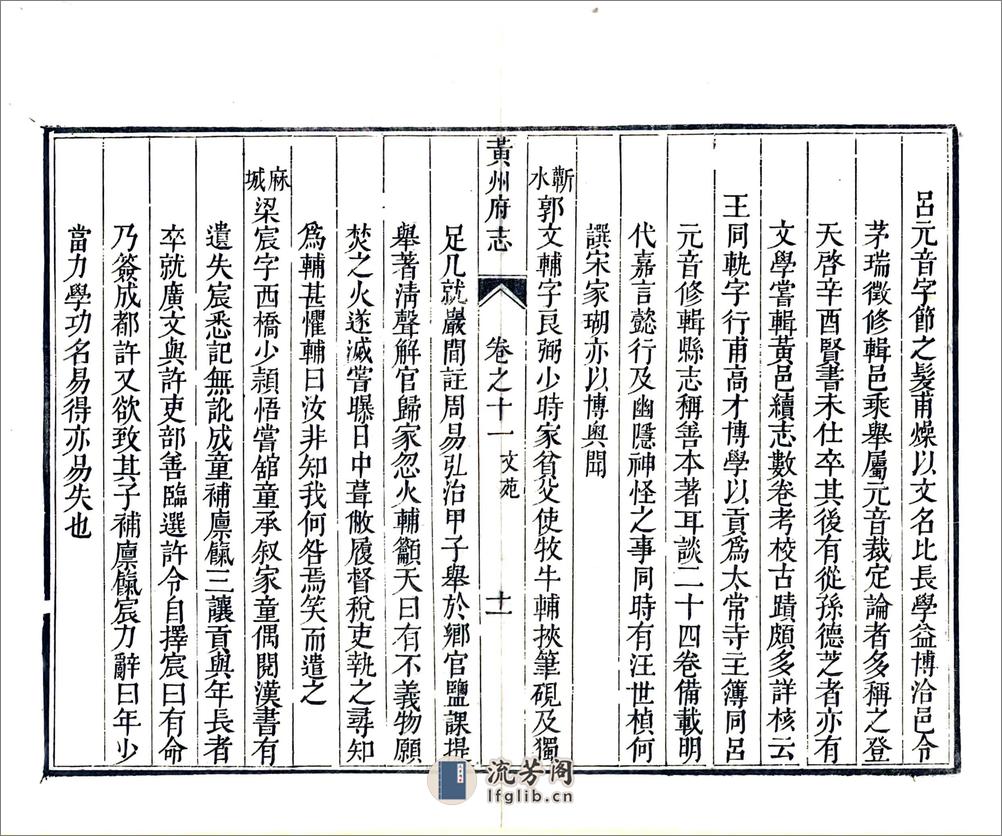 呂元音字節之髮甫燥以文名比長學益博洽邑令
茅瑞徵修輯邑乘舉屬元音裁定論者多稱之登
天啓辛酉賢書未仕卒其後有從孫德芝者亦有
文學嘗輯黃邑續志數卷考校古蹟頗多詳核云
王同軌字行甫高才博學以貢爲太常寺主簿同呂
元音修輯縣志稱善本著耳談二十四卷備載明
代嘉言懿行及幽隱神怪之事同時有汪世楨何
譔宋家瑚亦以博奥聞
蘄水
郭文輔字良弼少時家貧父使牧牛輔挾筆硯及獨
黃州府志
卷之十一
文苑
十一
足几就巖間註周易弘治甲子舉於鄉官鹽課提
舉著淸聲解官歸家忽火輔籲天曰有不義物願
焚之火遂滅嘗曝日中葺敝履督稅吏執之尋知
爲輔甚懼輔曰汝非知我何咎焉笑而遣之
麻城
梁宸字西橋少穎悟嘗舘童承叙家童偶閱漢書有
遺失宸悉記無訛成童補廪餼三讓貢與年長者
卒就廣文與許吏部善臨選許令自擇宸曰有命
乃簽成都許又欲致其子補廪餼宸力辭曰年少
當力學功名易得亦易失也
流芳阁
lfglib.cn